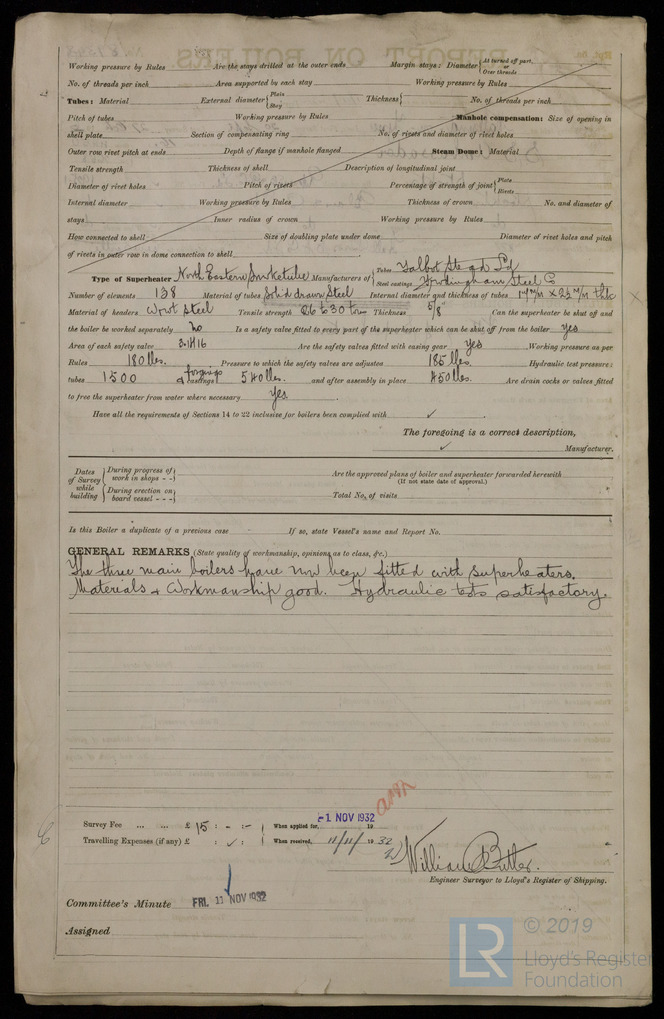 Working pressure by Rules Are the stays drilled at the outer ends Margin stays: Diameter { At turned off part, or Over threads
No. of threads per inch Area supported by each stay Working pressure by Rules
Tubes: Material External diameter { Plain Stay Thickness { No. of threads per inch
Pitch of tubes Working pressure by Rules Manhole compensation: Size of opening in
shell plate Section of compensating ring No. of rivets and diameter of rivet holes
Outer row rivet pitch at ends Depth of flange if manhole flanged Steam Dome: Material
Tensile strength Thickness of shell Description of longitudinal joint
Diameter of rivet holes Pitch of rivets Percentage of strength of joint { Plate Rivets
Internal diameter Working pressure by Rules Thickness of crown No. and diameter of
stays Inner radius of crown Working pressure by Rules
How connected to shell Size of doubling plate under dome Diameter of rivet holes and pitch
of rivets in outer row in dome connection to shell
Type of Superheater North Eastern Smoketube Manufacturers of { Tubes Talbot Stead Ld Steel castings Steel Co
Number of elements 138 Material of tubes Solid drawn Steel Internal diameter and thickness of tubes 17 m/m × 2½ m/m thk
Material of headers Wrot Steel Tensile strength 26 to 30 tons Thickness 5/8" Can the superheater be shut off and
the boiler be worked separately No Is a safety valve fitted to every part of the superheater which can be shut off from the boiler yes
Area of each safety valve 3.1416 Are the safety valves fitted with easing gear yes Working pressure as per
Rules 180 lbs. Pressure to which the safety valves are adjusted 185 lbs. Hydraulic test pressure:
tubes 1500 forgings & castings 540 lbs. and after assembly in place 450 lbs. Are drain cocks or valves fitted
to free the superheater from water where necessary Yes
Have all the requirements of Sections 14 to 22 inclusive for boilers been complied with ✓
The foregoing is a correct description,
✓ Manufacturer.
Dates of Survey while building { During progress of work in shops - - { During erection on board vessel - - - Are the approved plans of boiler and superheater forwarded herewith
(If not state date of approval.)
Total No. of visits
Is this Boiler a duplicate of a previous case If so, state Vessel's name and Report No.
GENERAL REMARKS (State quality of workmanship, opinions as to class, &c.)
The three main boilers have now been fitted with superheaters.
Materials & Workmanship good. Hydraulic tests satisfactory.
Survey Fee ... ... £ 15 : - : - When applied for, -1 NOV 1932 19
Travelling Expenses (if any) £ : ✓ : When received, 11/11/ 19 32
William Butler.
Engineer Surveyor to Lloyd's Register of Shipping.
Committee's Minute FRI. 11 NOV 1932
Assigned
LR © 2019
Lloyd's Register
Foundation